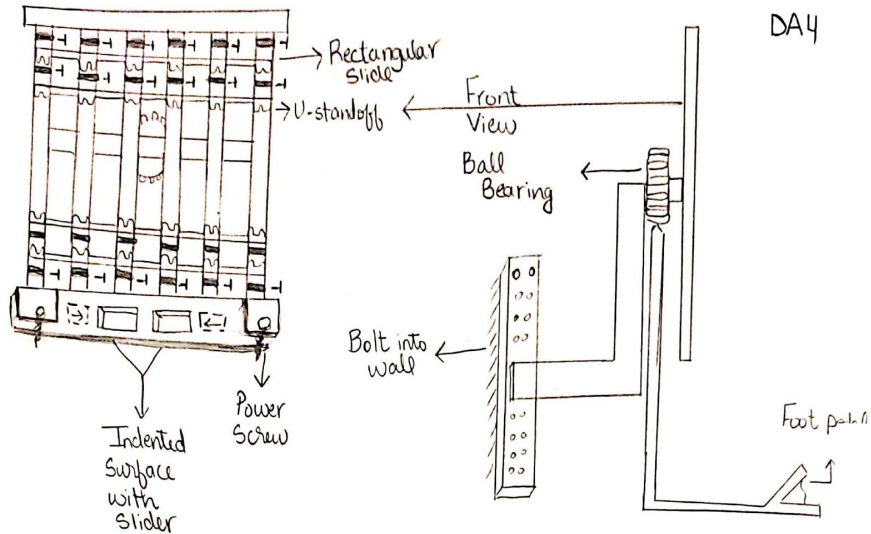 DA4
Rectangular
Slide
U-standoff
Front
View
Ball
Bearing
Bolt into
wall
Power
Screw
Indented
Surface
with
Slider
Foot